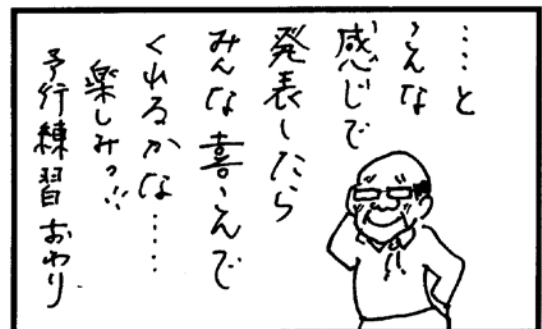 ……と
こんな
感じで
発表したら
みんな喜こんで
くれるかな……
楽しみっ!!
予行練習おわり.